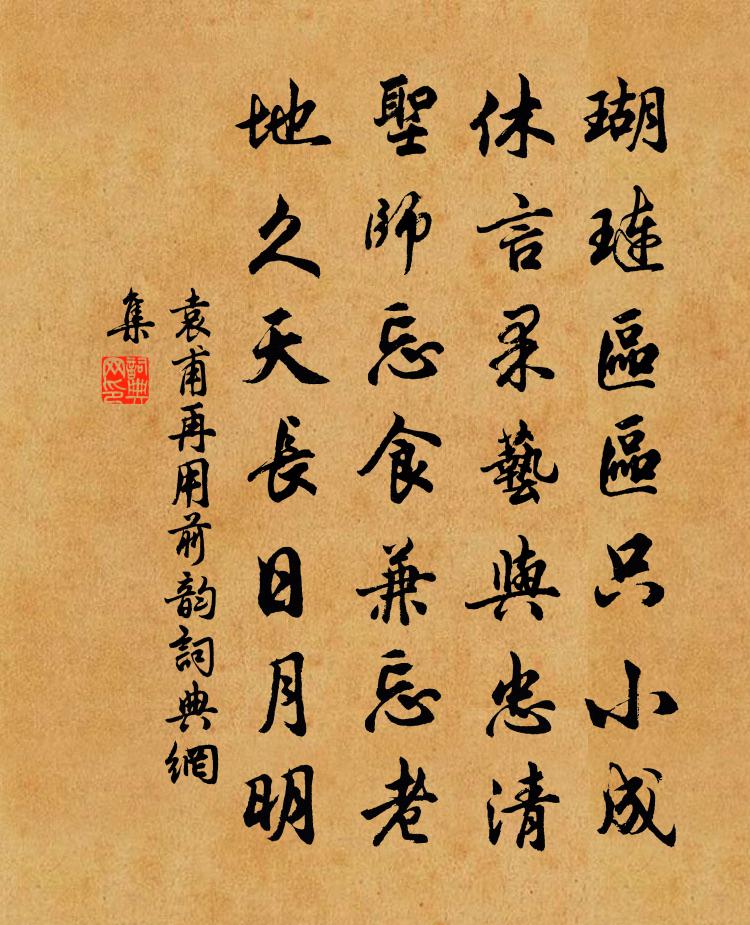 瑚璉區區只小成
休言果藝與忠清
聖師忘食兼忘老
地久天長日月明
袁甫再用前韵詞典網
集
詞典
网印